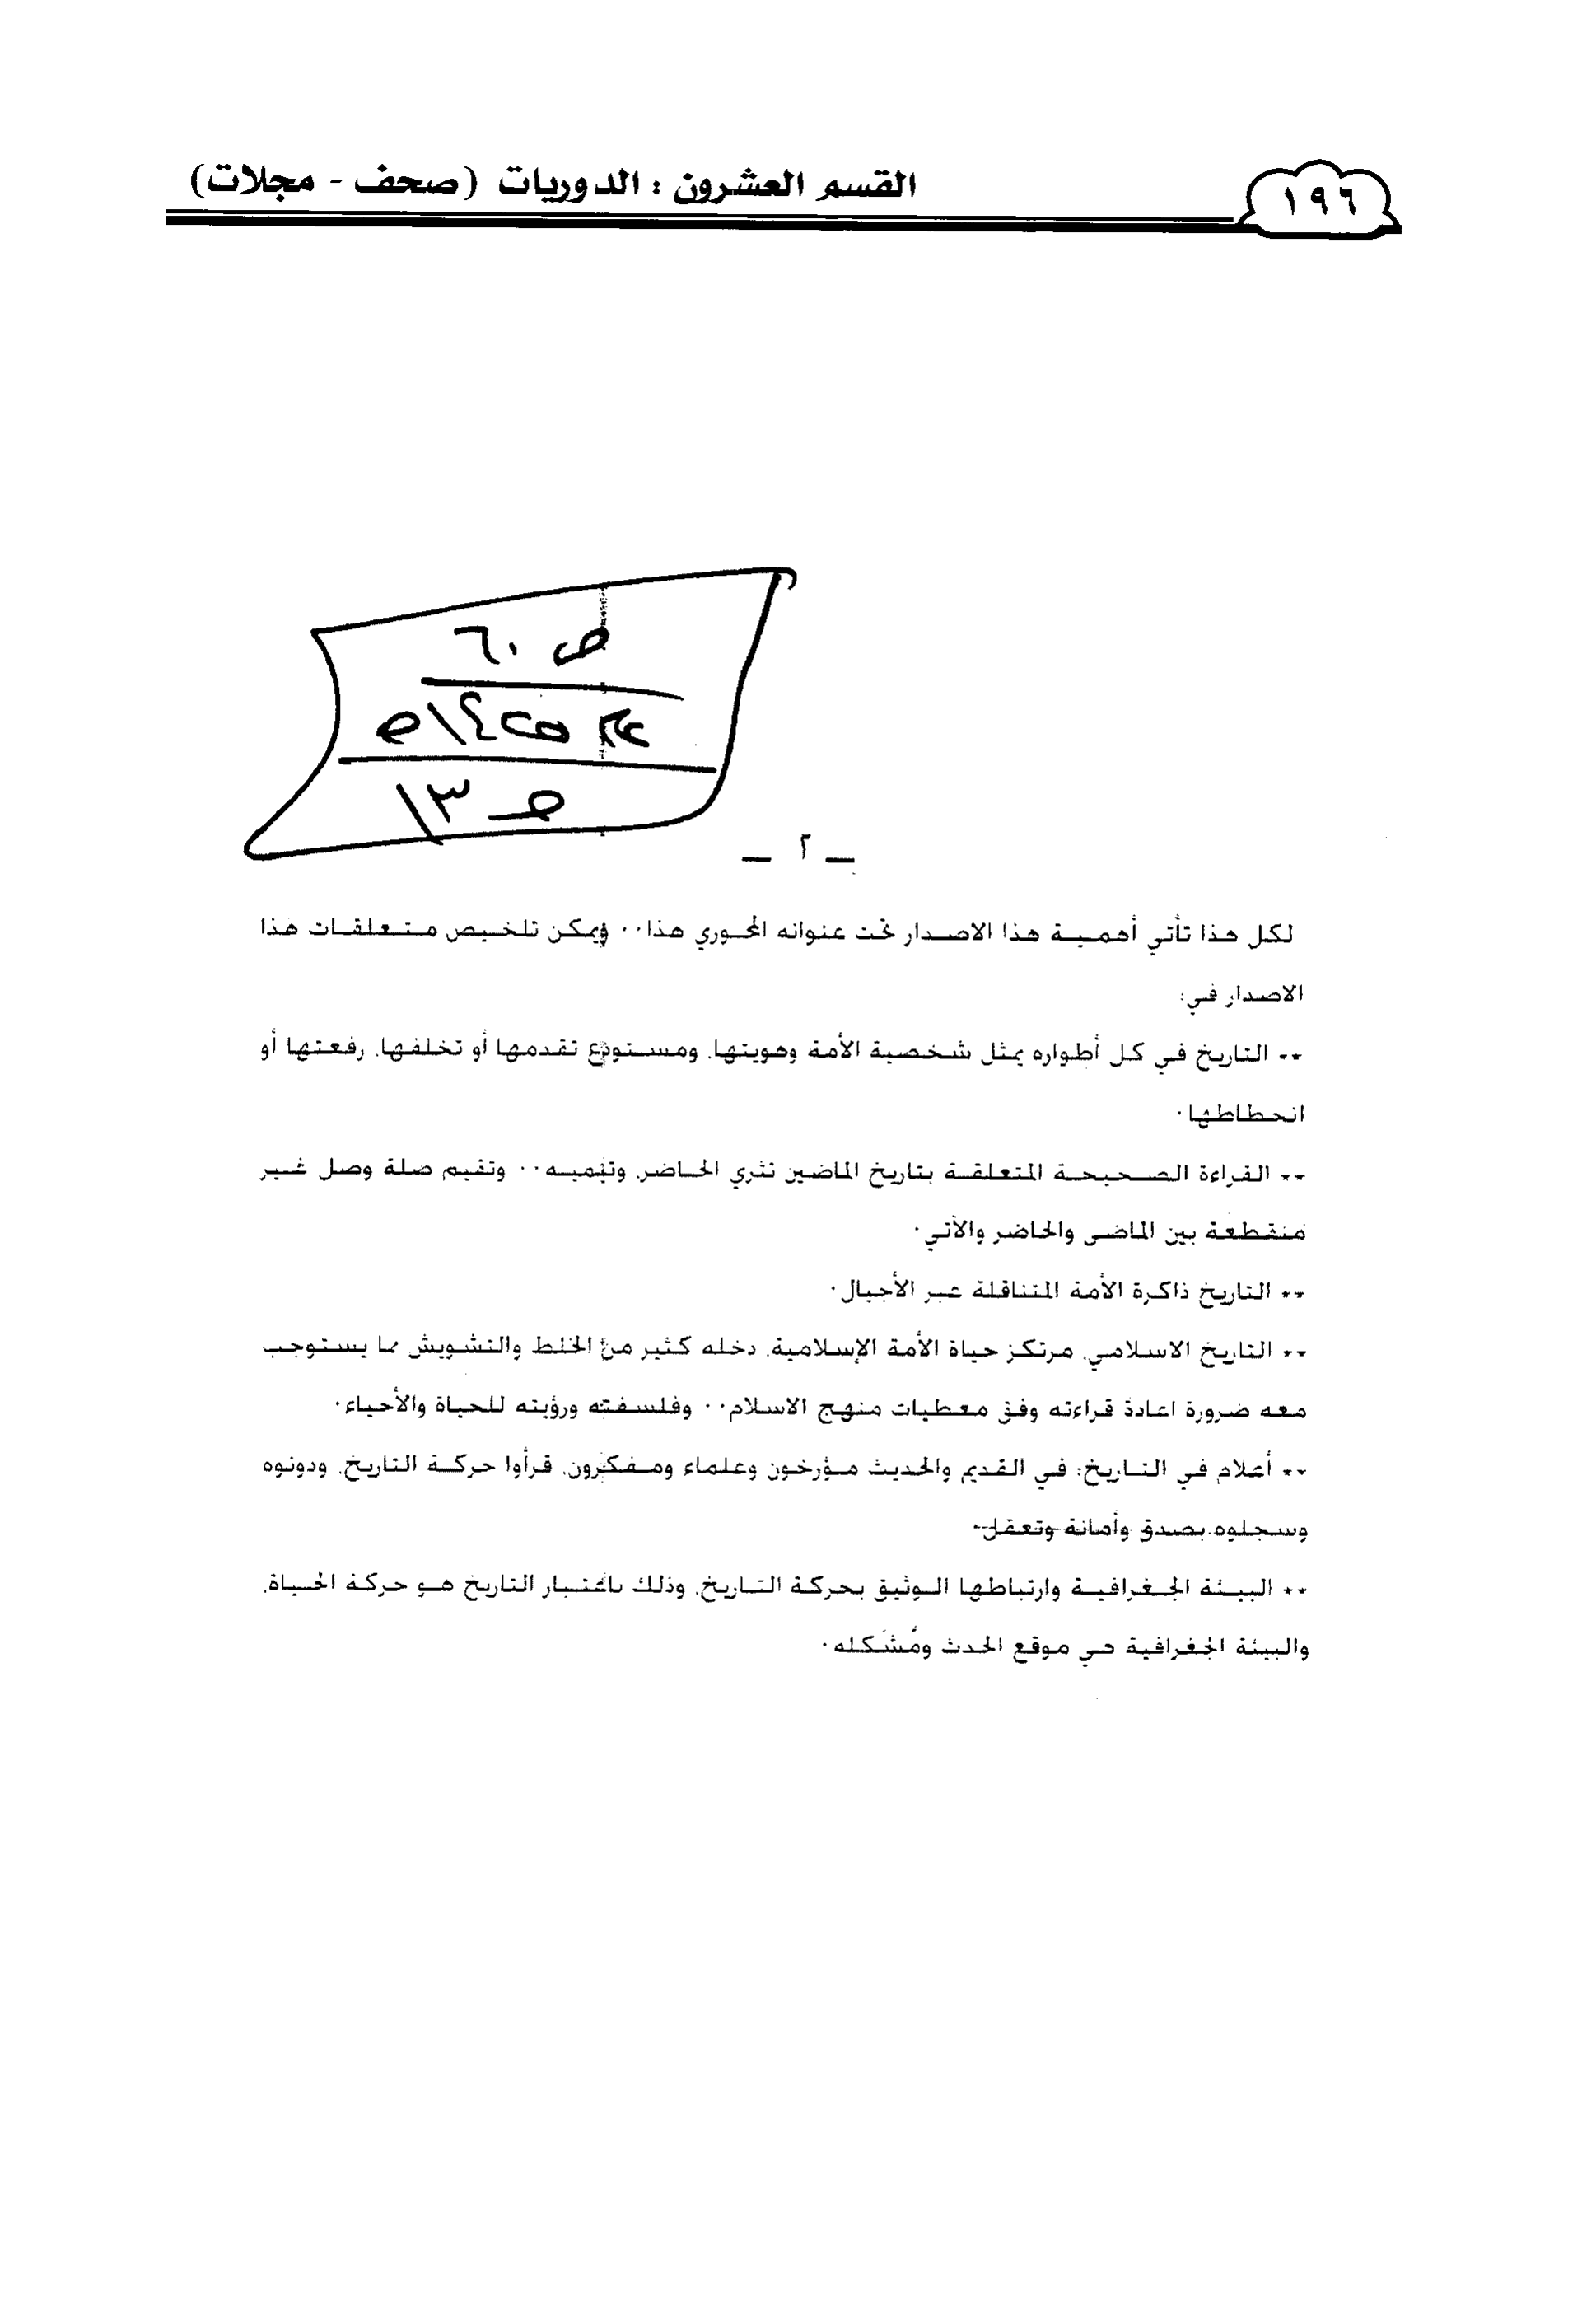 ١٩٦
القسم العشرون : الدوريات (صحف - مجلات)
ص ٦٠
ص ١٣
— ٢ —
لكل هذا تأتي أهمية هذا الاصدار تحت عنوانه المحوري هذا٠٠ ويمكن تلخيص متعلقات هذا
الاصدار في:
** التاريخ في كل أطواره يمثل شخصية الأمة وهويتها. ومستودع تقدمها أو تخلفها. رفعتها أو
انحطاطها٠
** القراءة الصحيحة المتعلقة بتاريخ الماضين تثري الحاضر. وتنميه٠٠ وتقيم صلة وصل غير
منقطعة بين الماضى والحاضر والآتي٠
** التاريخ ذاكرة الأمة المتناقلة عبر الأجيال٠
** التاريخ الاسلامي. مرتكز حياة الأمة الإسلامية. دخله كثير من الخلط والتشويش مما يستوجب
معه ضرورة اعادة قراءته وفق معطيات منهج الاسلام٠٠ وفلسفته ورؤيته للحياة والأحياء٠
** أعلام في التاريخ: في القديم والحديث مؤرخون وعلماء ومفكرون. قرأوا حركة التاريخ. ودونوه
وسجلوه بصدق وأمانة وتعقل٠
** البيئة الجغرافية وارتباطها الوثيق بحركة التاريخ. وذلك باعتبار التاريخ هو حركة الحياة.
والبيئة الجغرافية هي موقع الحدث ومُشَكله٠